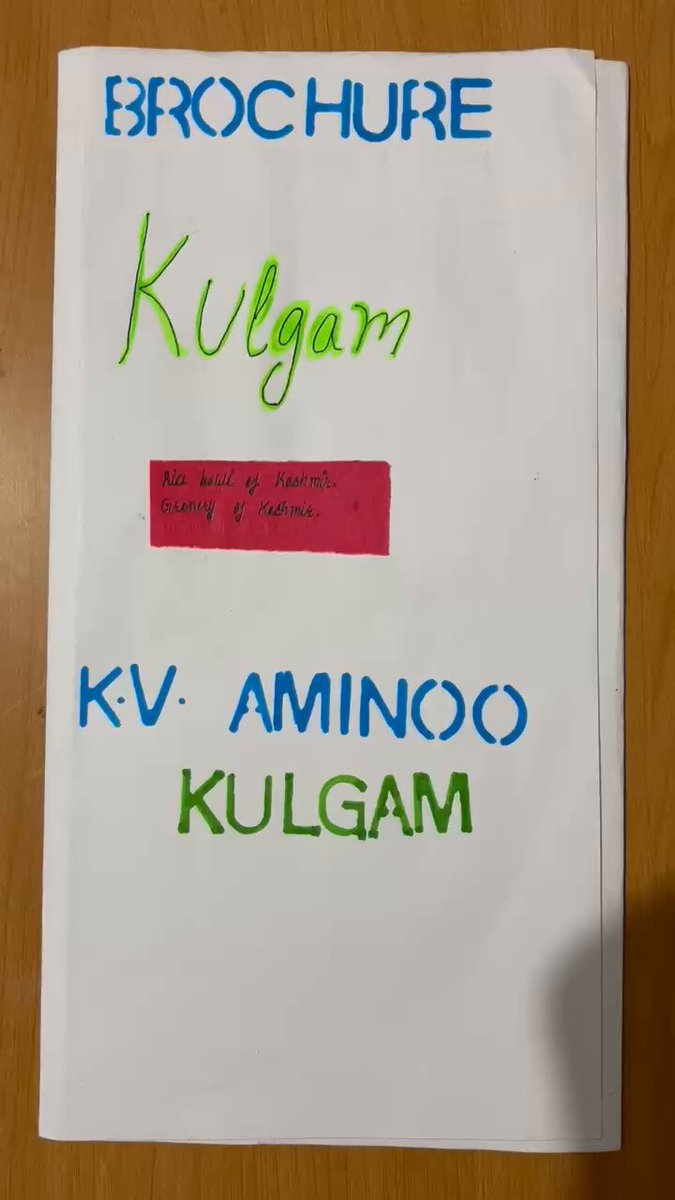 BROCHURE
Kulgam
Rice bowl of Kashmir.
Granery of Kashmir.
K.V. AMINOO
KULGAM